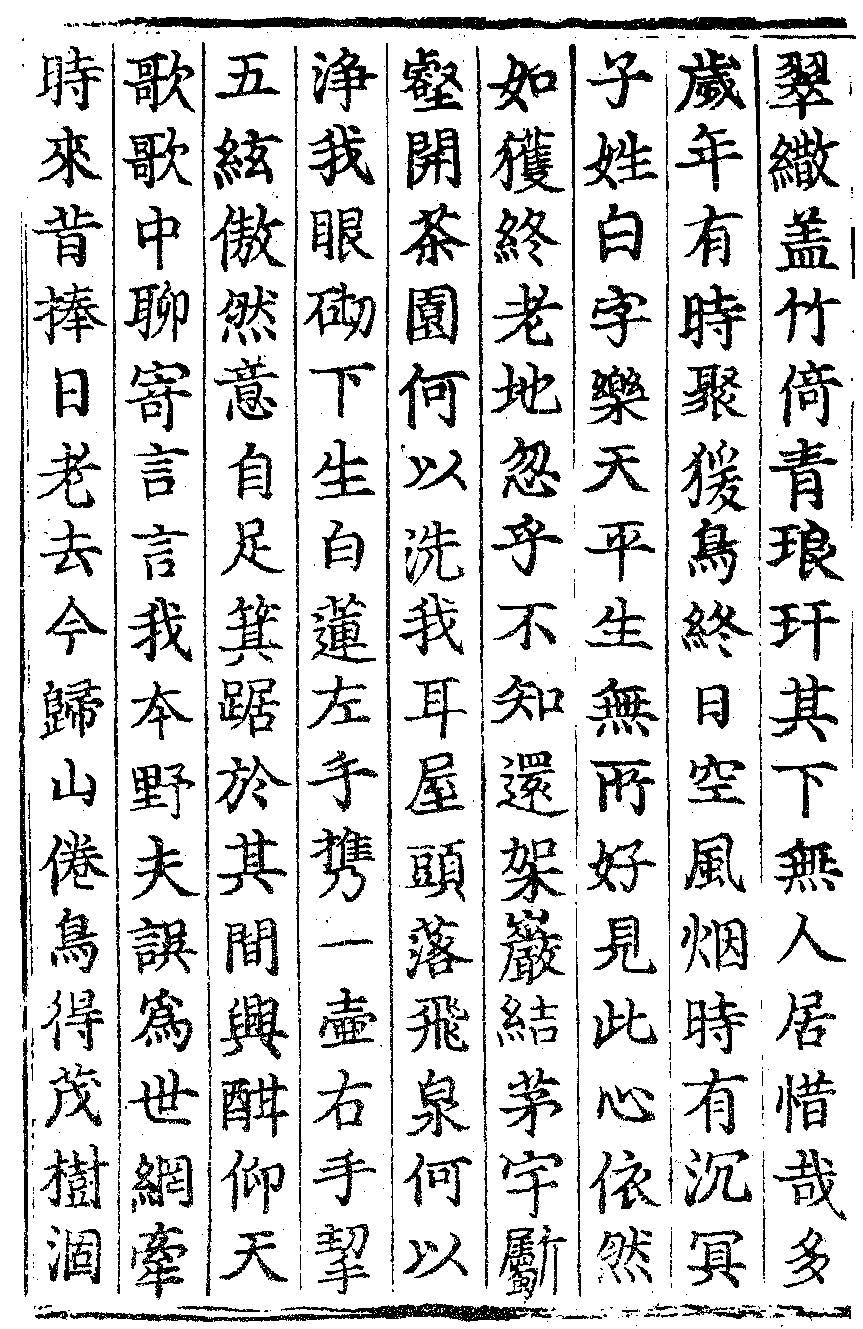 翠繖盖竹倚青琅玕其下無人居惜哉多
歲年有時聚猨鳥終日空風烟時有沉冥
子姓白字樂天平生無所好見此心依然
如獲終老地忽乎不知還架巖結茅宇斸
壑開茶園何以洗我耳屋頭落飛泉何以
浄我眼砌下生白蓮左手攜一壷右手挈
五絃傲然意自足箕踞於其間興酣仰天
歌歌中聊寄言言我本野夫誤爲世網牽
時來昔捧日老去今歸山倦鳥得茂樹涸